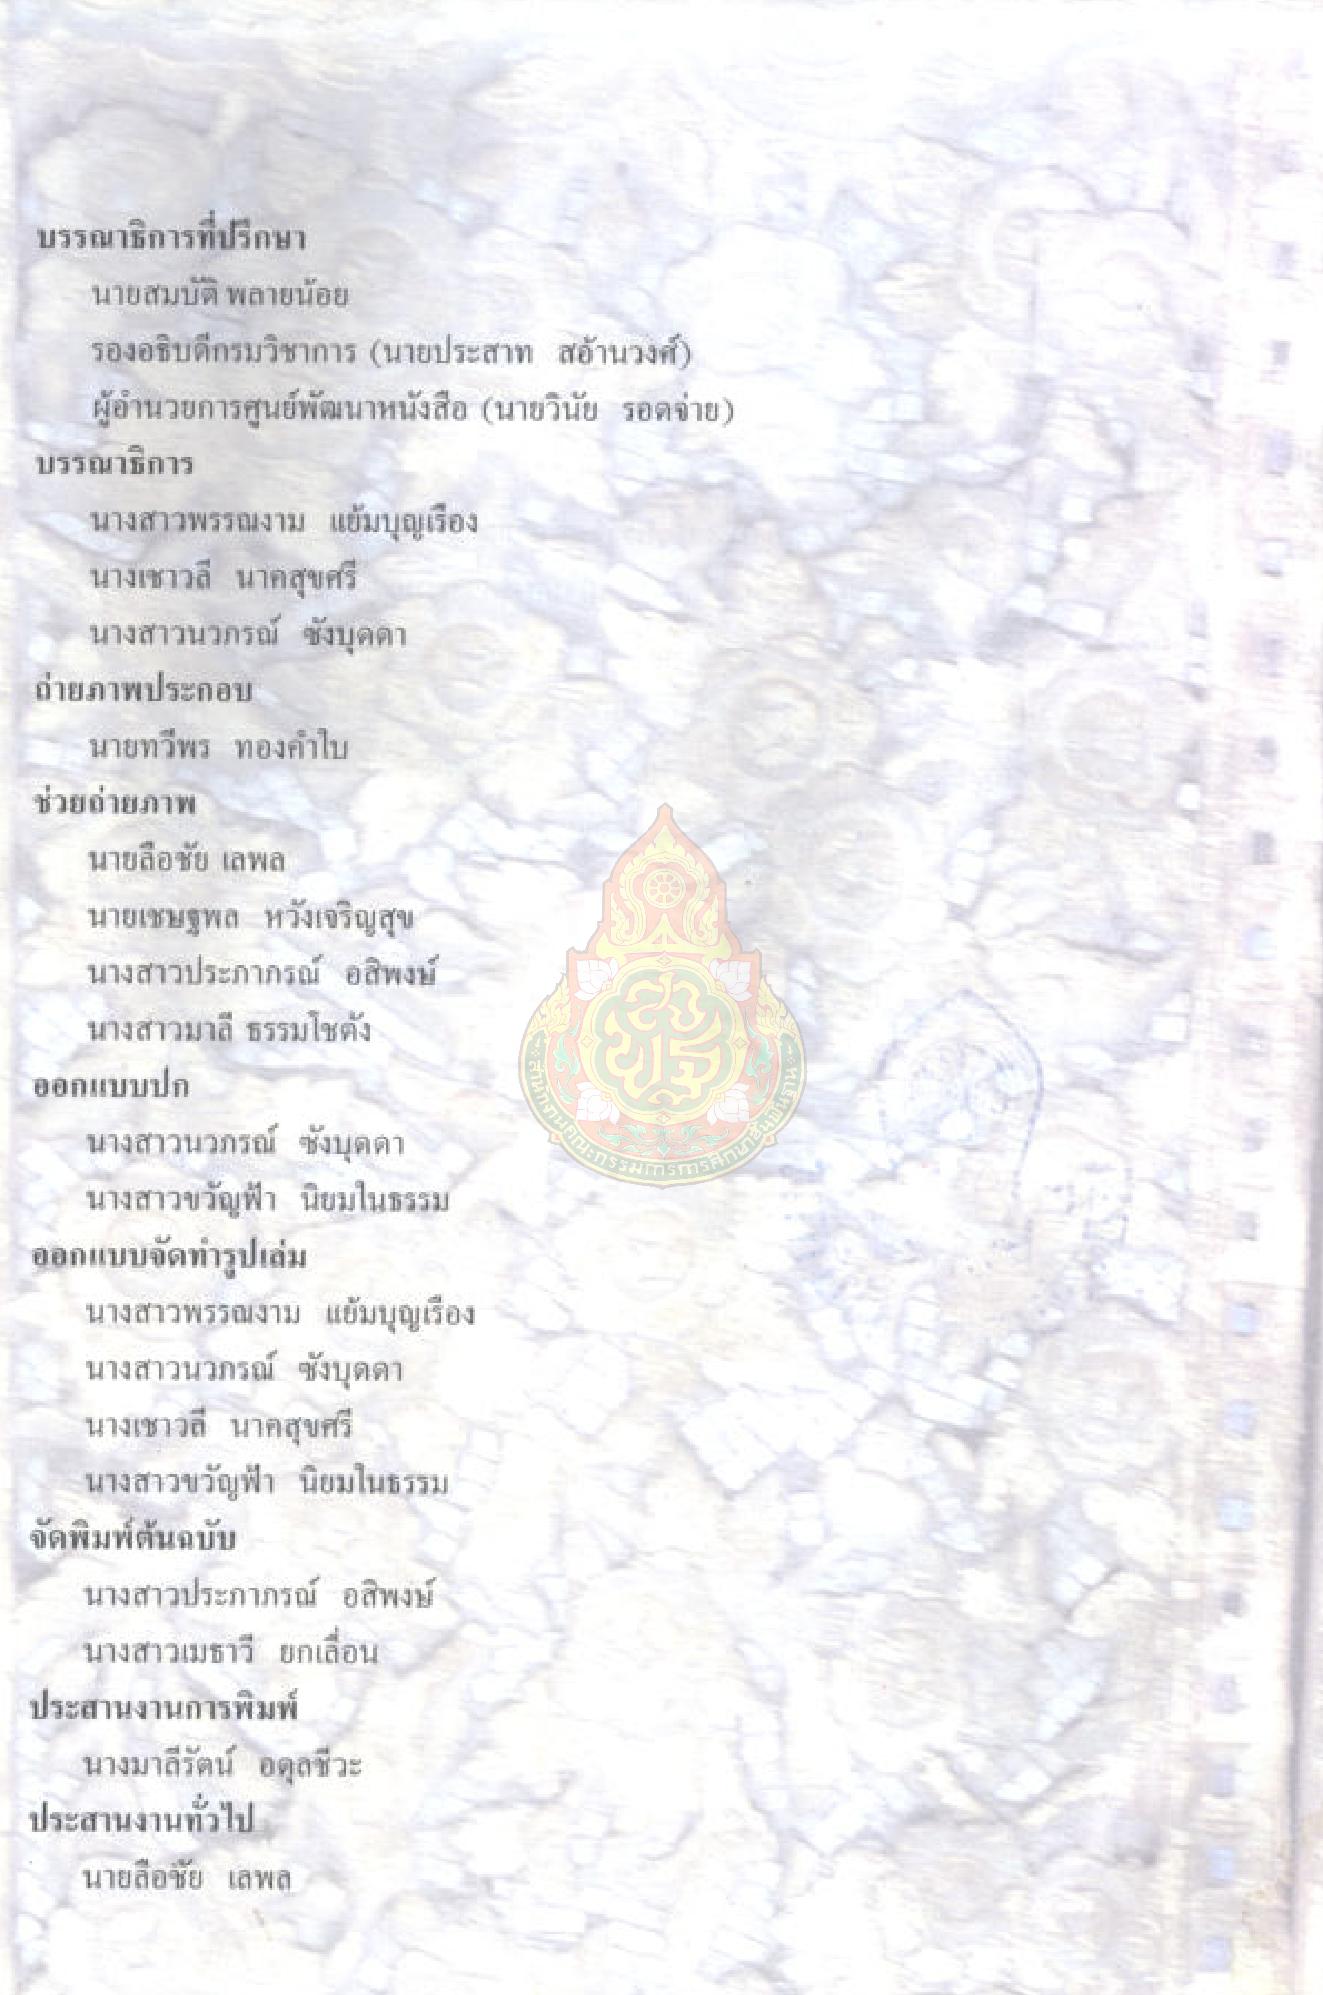 บรรณาธิการที่ปรึกษา
นายสมบัติ พลายน้อย
รองอธิบดีกรมวิชาการ (นายประสาท สอ้านวงศ์)
ผู้อำนวยการศูนย์พัฒนาหนังสือ (นายวินัย รอดจ่าย)
บรรณาธิการ
นางสาวพรรณงาม แย้มบุญเรือง
นางเชาวลี นาคสุขศรี
นางสาวนวภรณ์ ซังบุดดา
ถ่ายภาพประกอบ
นายทวีพร ทองคำใบ
ช่วยถ่ายภาพ
นายลือชัย เลพล
นายเชษฐพล หวังเจริญสุข
นางสาวประภาภรณ์ อสิพงษ์
นางสาวมาลี ธรรมโชตัง
ออกแบบปก
นางสาวนวภรณ์ ซังบุดดา
นางสาวขวัญฟ้า นิยมในธรรม
ออกแบบจัดทำรูปเล่ม
นางสาวพรรณงาม แย้มบุญเรือง
นางสาวนวภรณ์ ซังบุดดา
นางเชาวลี นาคสุขศรี
นางสาวขวัญฟ้า นิยมในธรรม
จัดพิมพ์ต้นฉบับ
นางสาวประภาภรณ์ อสิพงษ์
นางสาวเมธาวี ยกเลื่อน
ประสานงานการพิมพ์
นางมาลีรัตน์ อดุลชีวะ
ประสานงานทั่วไป
นายลือชัย เลพล
สำนักงานคณะกรรมการการศึกษาขั้นพื้นฐาน